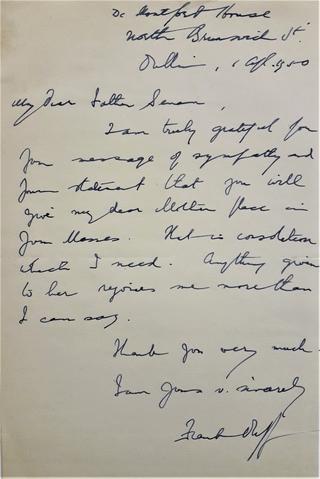 De Montfort House
North Brunswick St.
Dublin, 1 Apl. 1950
My Dear Father Senan,
I am truly grateful for
your message of sympathy and
your statement that you will
give my dear Mother place in
your Masses. That is consolation
which I need. Anything given
to her rejoices me more than
I can say.
Thank you very much.
I am yours v. sincerely
Frank Duff